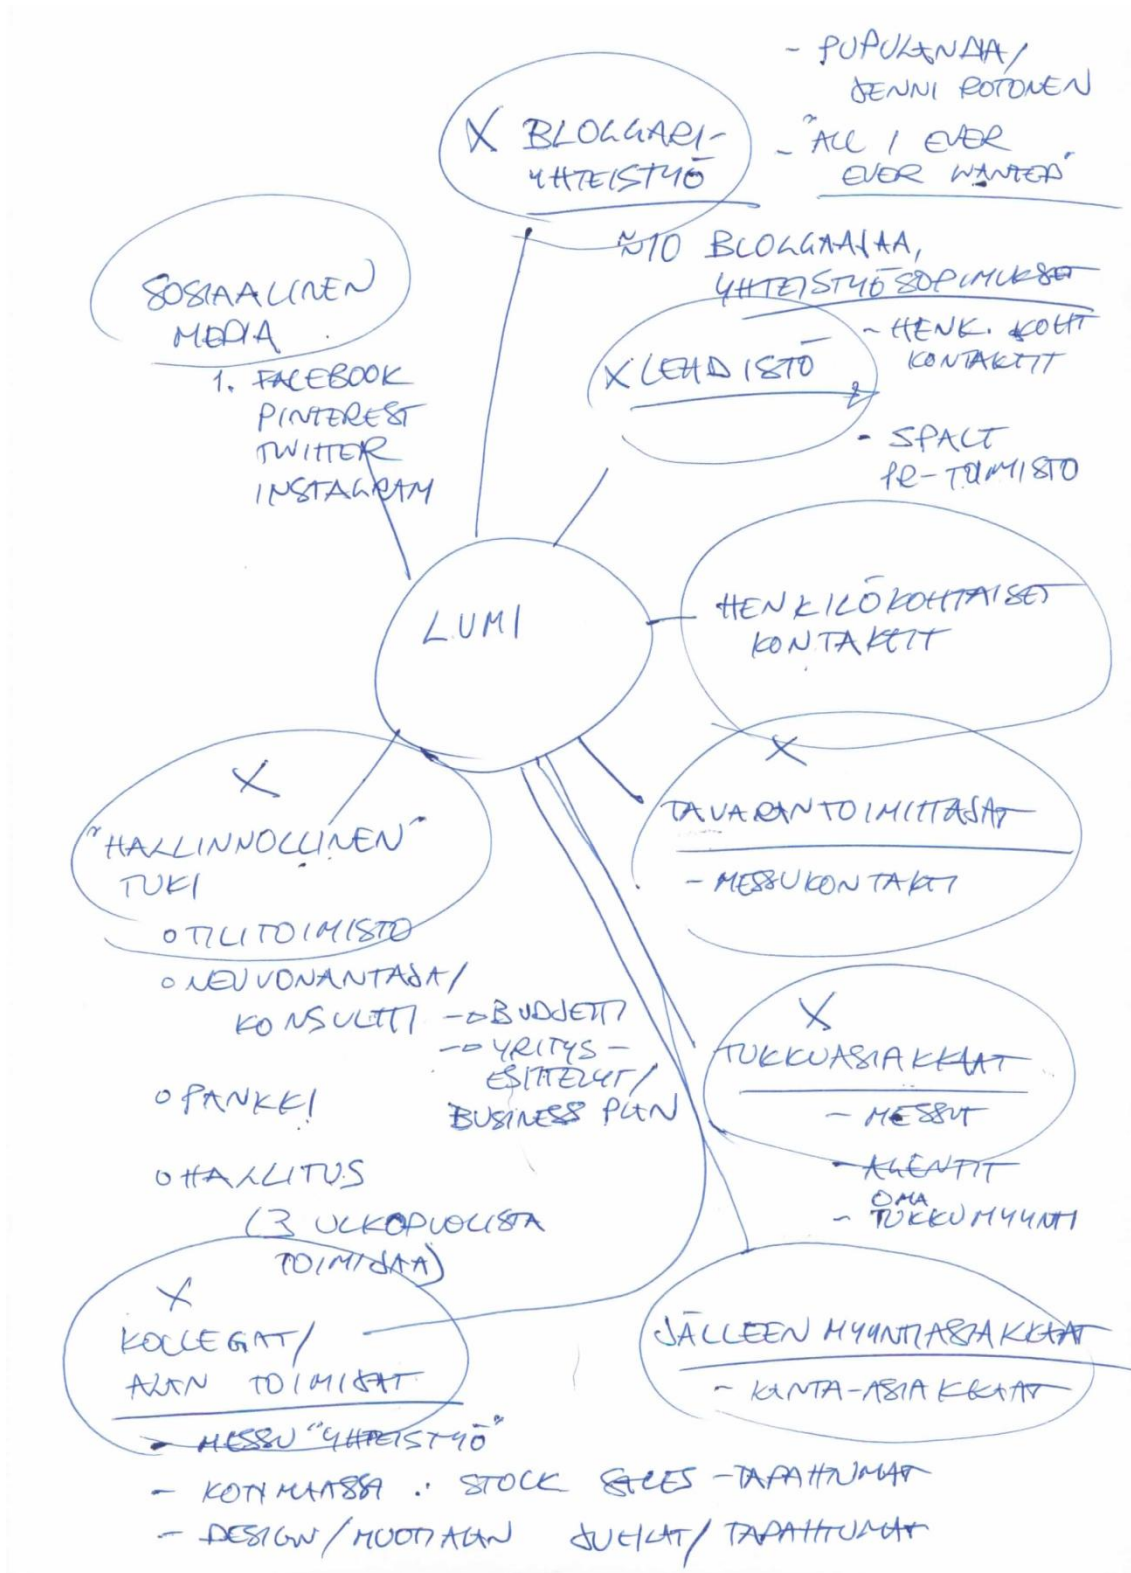 - PUPULANDIA/
JENNI ROTONEN
- "ALL I EVER
EVER WANTED"
X BLOGGARI-
YHTEISTYÖ
≈10 BLOGGAAJAA,
YHTEISTYÖSOPIMUKSET
SOSIAALINEN
MEDIA
1. FACEBOOK
PINTEREST
TWITTER
INSTAGRAM
X LEHDISTÖ
- HENK. KOHT
KONTAKTIT
- SPALT
PR-TOIMISTO
LUMI
HENKILÖKOHTAISET
KONTAKTIT
X
TAVARANTOIMITTAJAT
- MESSUKONTAKTI
X
"HALLINNOLLINEN"
TUKI
o TILITOIMISTO
o NEUVONANTAJA/
KONSULTTI → BUDJETTI
→ YRITYS-
ESITTELYT/
BUSINESS PLAN
o PANKKI
o HALLITUS
(3 ULKOPUOLISTA
TOIMIJAA)
X
TUKKUASIAKKAAT
- MESSUT
- AGENTIT
OMA
- TUKKUMYYNTI
JÄLLEENMYYNTIASIAKKAAT
- KANTA-ASIAKKAAT
X
KOLLEGAT/
ALAN TOIMIJAT
- MESSU "YHTEISTYÖ"
- KOTIMAASSA : STOCK SALES -TAPAHTUMAT
- DESIGN/MUOTIALAN JUHLAT/TAPAHTUMAT